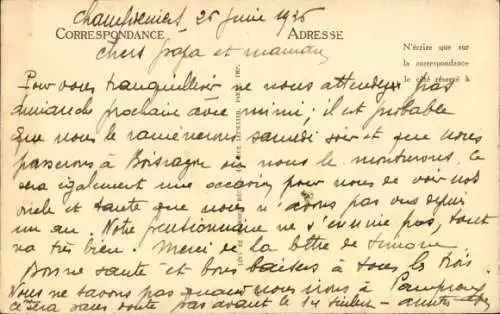 Champdeniers 26 juin 1926
CORRESPONDANCE ADRESSE
chers papa et maman
N'écrire que sur
la correspondance
le côté réservé à
Pour vous tranquilliser ne nous attendez pas
dimanche prochain avec mimi ; il est probable
que nous le ramènerons samedi soir et que nous
passerons à Boisragon où nous le montrerons. ce
sera également une occasion pour nous de voir nos
oncle et tante que nous n'avons pas vus depuis
un an. Notre pensionnaire ne s'ennuie pas, tout
va très bien. Merci de la lettre de Simone.
Bonne santé et bons baisers à tous les trois
Nous ne savons pas quand nous irons à Pamproux
ce sera sans doute pas avant le 14 juillet -